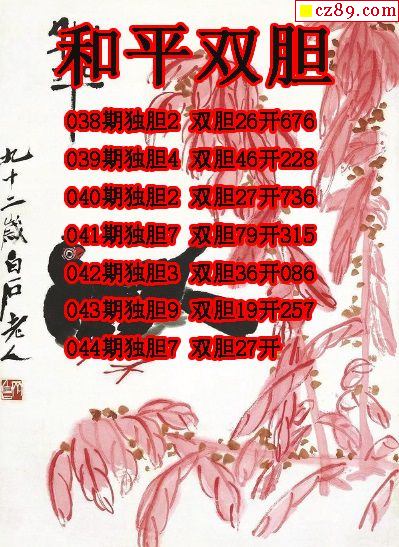 cz89.com
和平双胆
038期独胆2 双胆26开676
039期独胆4 双胆46开228
040期独胆2 双胆27开736
041期独胆7 双胆79开315
042期独胆3 双胆36开086
043期独胆9 双胆19开257
044期独胆7 双胆27开
九十二歲白石老人